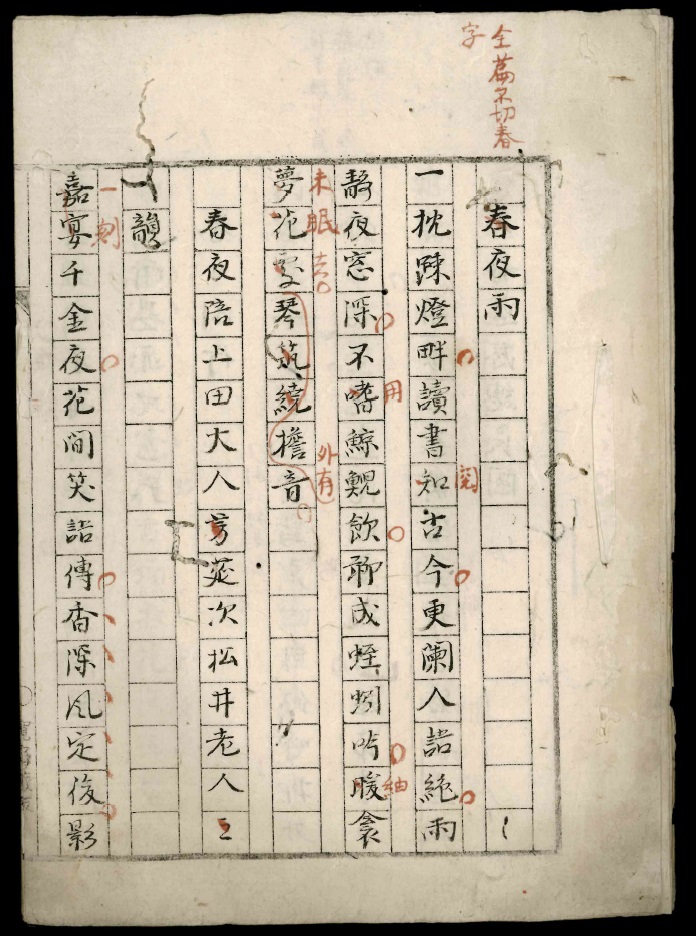 全篇不切春
字
春夜雨
一枕疎燈畔讀書知古今更闌人語絶雨
閲
靜夜窓深不嗜鯨鯢飲聊成蛙蚓吟暖衾
用
紬
夢花雯琴筑繞檐音
未眠
去
外有
春夜陪上田大人芳莚次松井老人三
韻
嘉宴千金夜花間笑語傳香深風定後影
一刻